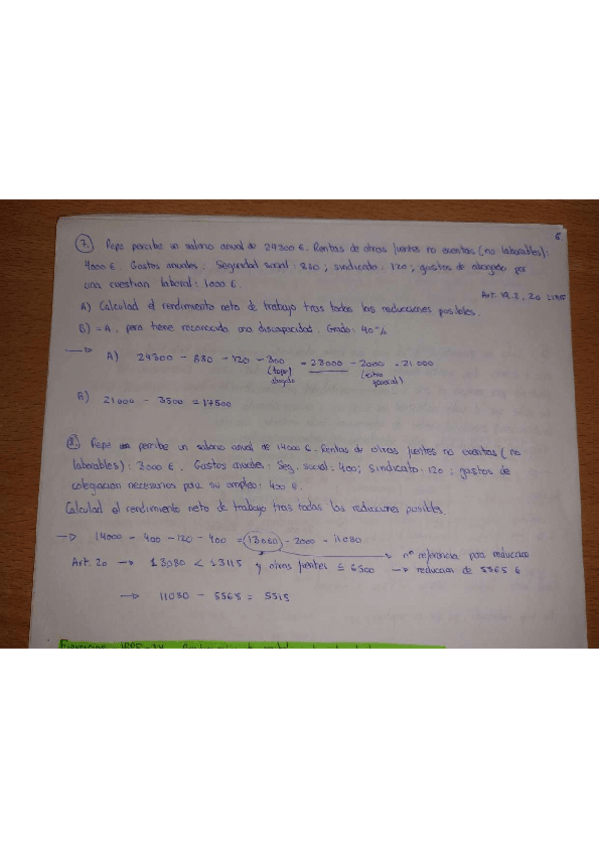 6
7. Pepe percibe un salario anual de 24300 €. Rentas de otras fuentes no exentas (no laborables):
4000 €. Gastos anuales: Seguridad social: 880; sindicato: 120; gastos de abogado por
una cuestion laboral: 1000 €.
Art. 19.2, 20
A) Calculad el rendimiento neto de trabajo tras todas las reducciones posibles.
B) = A, pero tiene reconocida una discapacidad. Grado: 40%
A) 24300 - 880 - 120 - 300 = 23000 - 2000 = 21.000
(tope abogado) (extra general)
B) 21000 - 3500 = 17500
8. Pepe percibe un salario anual de 14000 €. Rentas de otras fuentes no exentas (no
laborables): 3000 €. Gastos anuales: Seg. social: 400; Sindicato: 120; gastos de
colegiación necesarios para su empleo: 400 €.
Calculad el rendimiento neto de trabajo tras todas las reducciones posibles.
→ 14000 - 400 - 120 - 400 = 13080 - 2000 = 11080
nº referencia para reducción
Art. 20 → 13080 < 13115 y otras fuentes ≤ 6500 → reducción de 5565 €
→ 11080 - 5565 = 5515